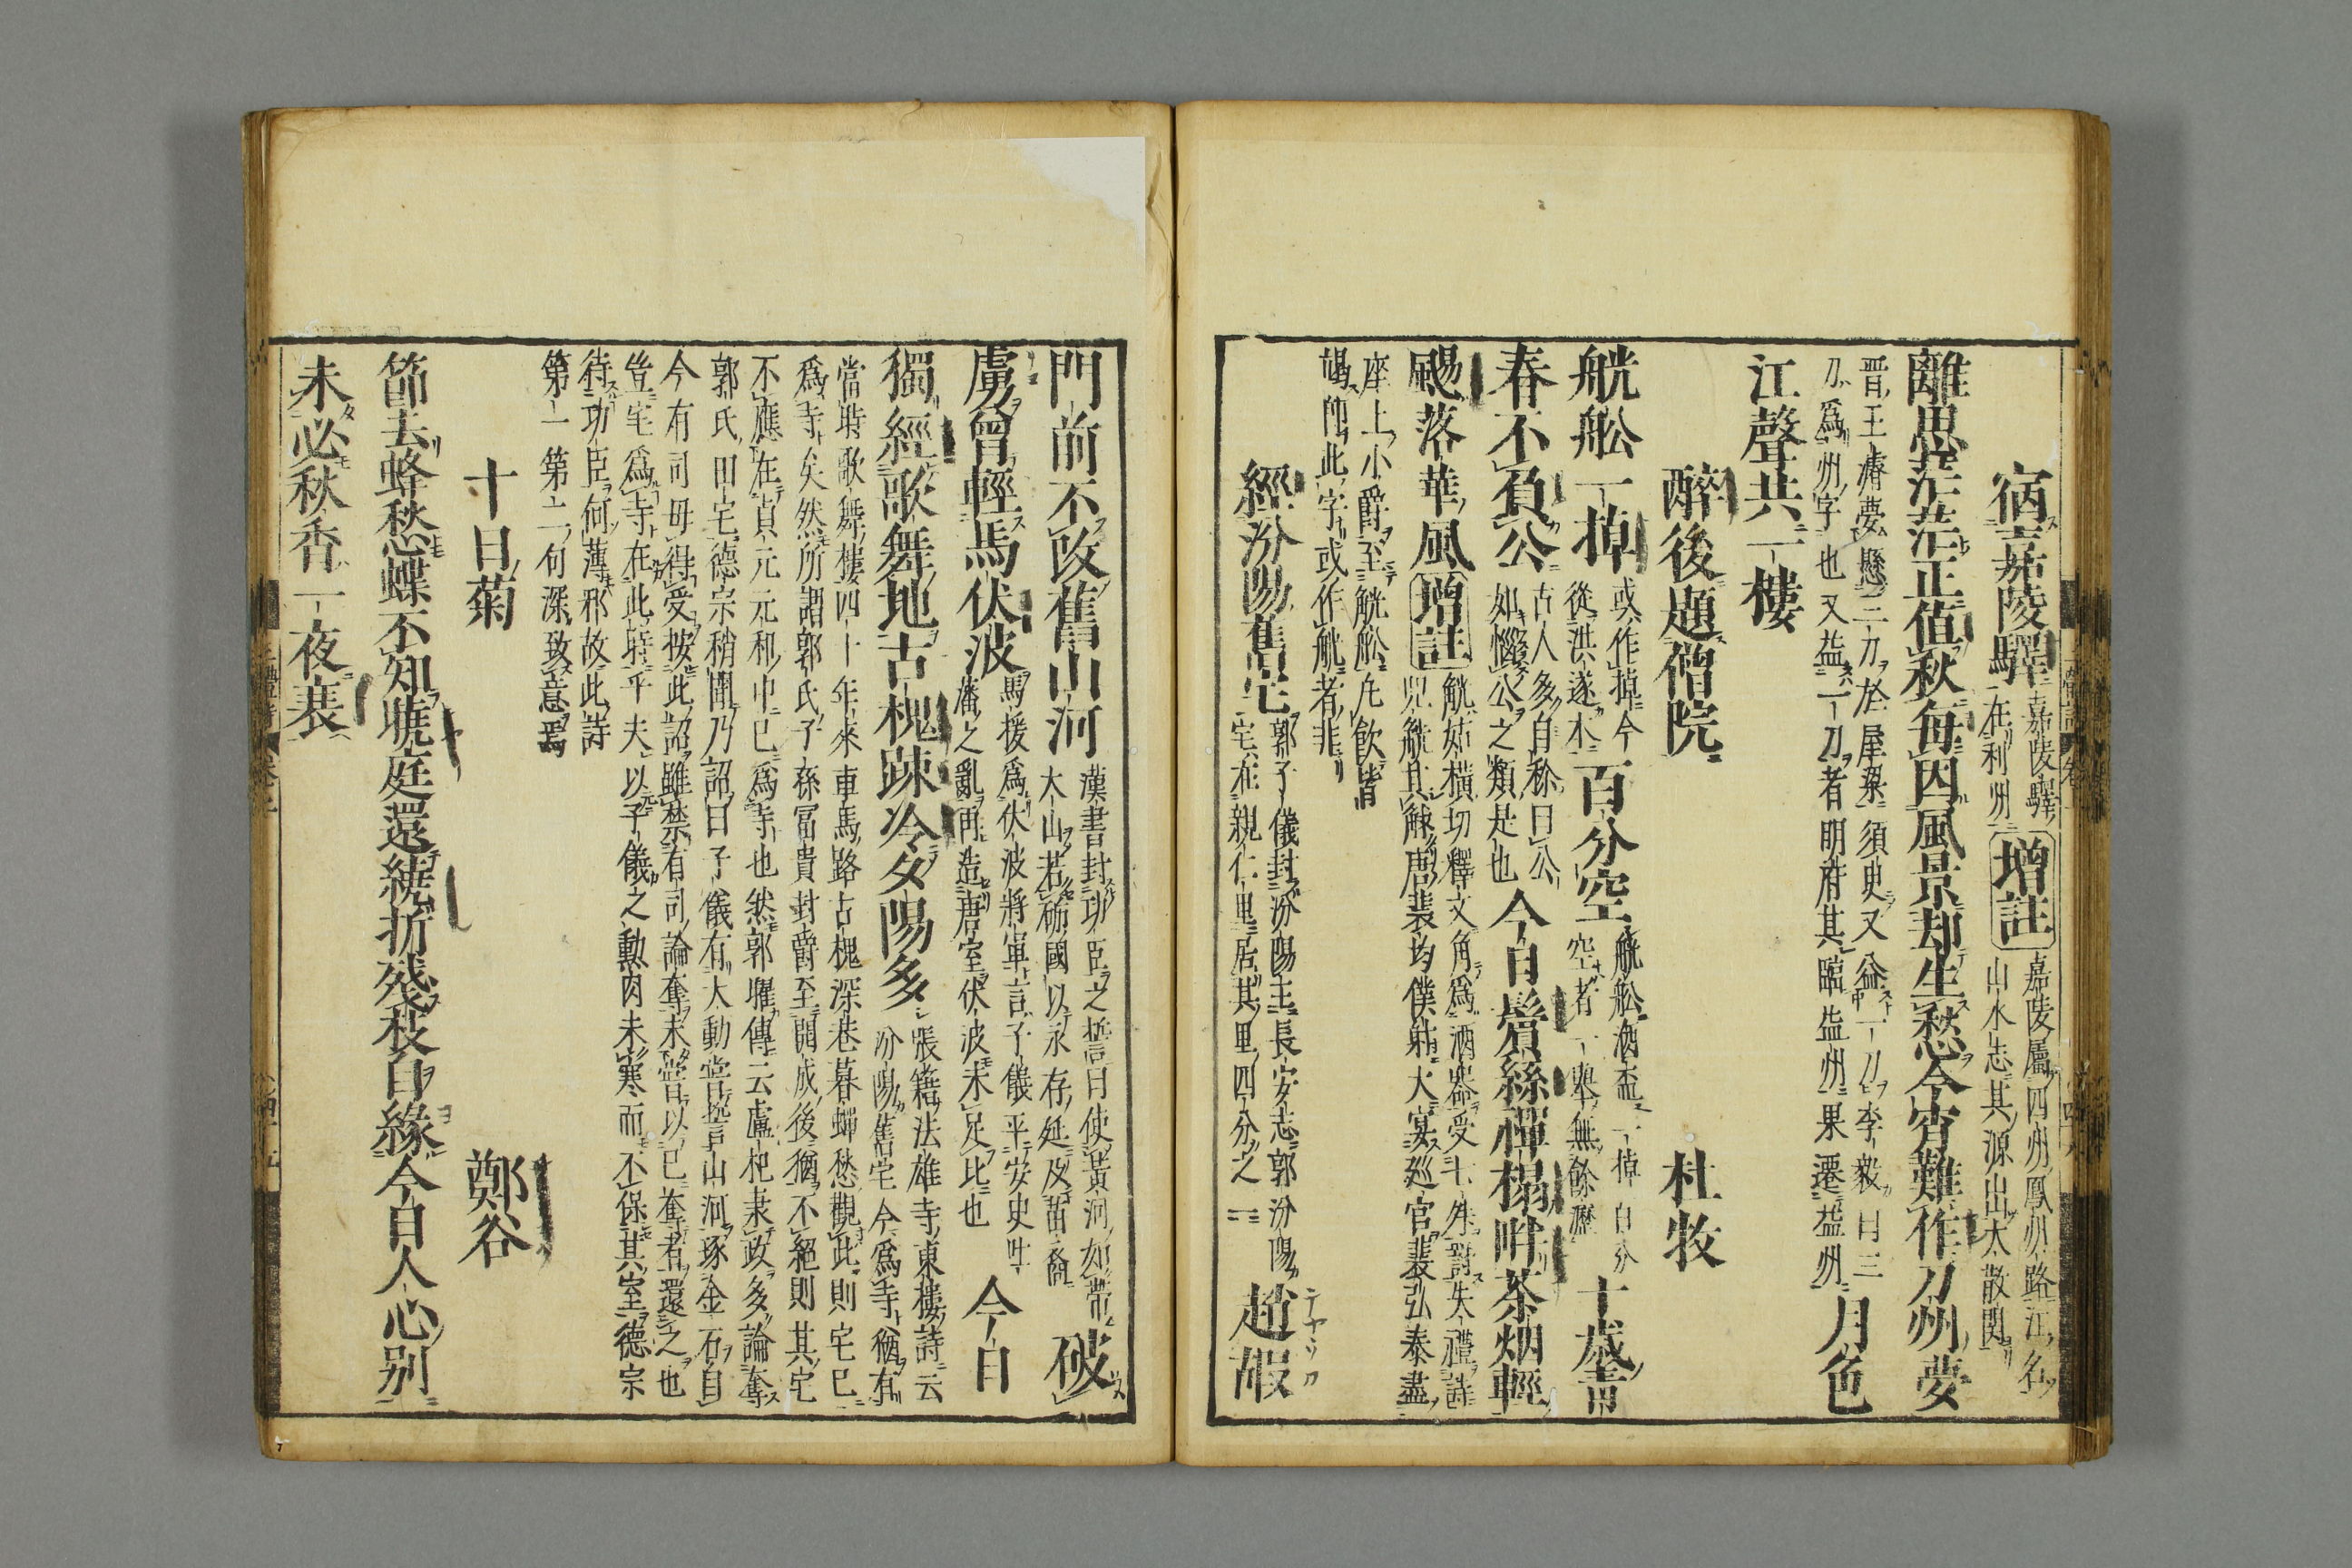 宿嘉陵驛 嘉陵驛在利州 增註 嘉陵屬四州鳳州路江名山水志其源出大散関
離思茫茫正值秋每因風景却生愁今宵難作刀州夢
晋王濬夢懸三刀於屋梁須臾又益一刀李毅曰三
刀爲州字也又益一刀者明府其臨益州果遷益州 月色
江聲共一樓
醉後題僧院 杜牧
觥舩一掉 或作掉今從洪遂本 百分空 觥舩酒盃一掉百分空者一擧無餘瀝 十歲青
春不負公 古人多自称曰公如惱公之類是也 今日鬢絲禪榻畔茶烟輕
颺落華風 增註 觥姑橫切釋文角爲酒器受七升罰失禮詩兕觥其觩唐裴均僕射大宴巡官裴弘泰盡
座上小爵至觥舩凡飲皆
竭  此字或作觥者非
經汾陽舊宅 郭子儀封汾陽王長安志郭汾陽宅在親仁里居其里四分之一 趙嘏
門前不改舊山河 漢書封功臣之誓曰使黃河如帶大山若砺國以永存延及苗裔 破
虜曾輕馬伏波 馬援爲伏波將軍言子儀平安史吐藩之亂再造唐室伏波未足比也 今日
獨經歌舞地古槐踈冷夕陽多 張籍法雄寺東樓詩云汾陽舊宅今爲寺猶有
當時歌舞樓四十年來車馬路古槐深巷暮蟬愁觀此則宅已
爲寺矣然所謂郭氏子孫冨貴封爵至開成後猶不絕則其宅
不應在貞元元和中已爲寺也然郭曜傳云盧杞秉政多論奪
郭氏田宅德宗稍聞乃詔曰子儀有大勳嘗誓山河琢金石自
今有司毋得受按此詔雖禁有司論奪末嘗以已奪者還之也
豈宅爲寺在此時乎夫以子儀之勳肉未寒而不保其室德宗
待功臣何薄邪故此詩
第一第二句深致意焉
十日菊 鄭谷
節去蜂愁蝶不知曉庭還繞折殘枝自緣今日人心别
未必秋香一夜衰